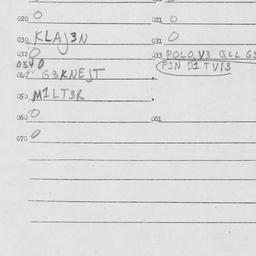 020 0 021 0
030 KLAJ3N 031 0
032 0 033 POLO V3
0340 FIN D1 TV13
G3KNEJT
050 M1LT3R
060 0 061
070 0